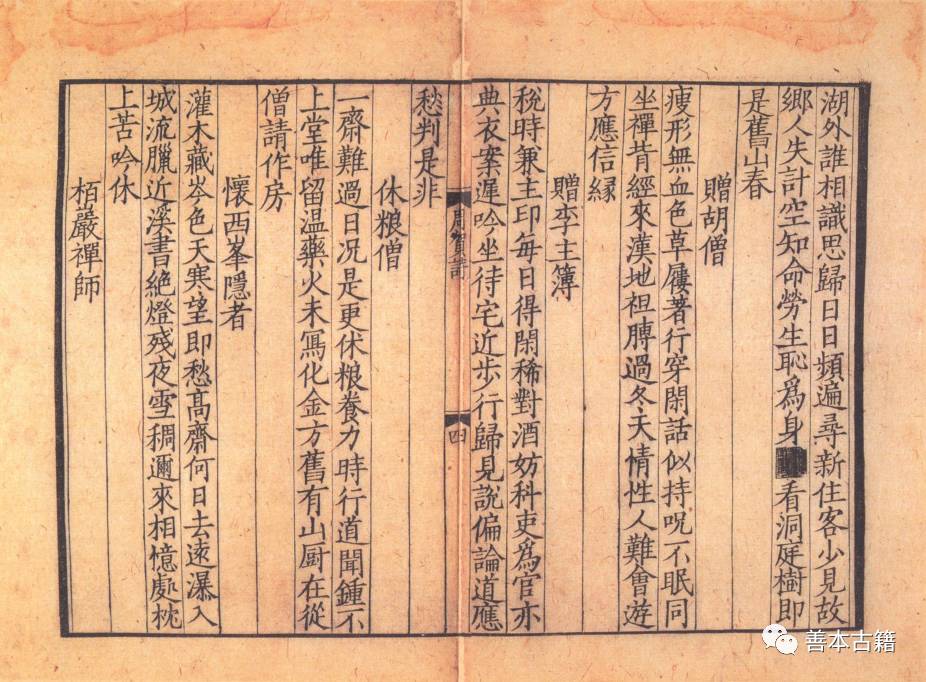 湖外誰相識思歸日日頻遍尋新住客少見故
鄉人失計空知命勞生恥為身看洞庭樹即
是舊山春
贈胡僧
瘦形無血色草屨著行穿閑話似持呪不眠同
坐禪昔經來漢地袒膊過冬天情性人難會遊
方應信緣
贈李主簿
稅時兼主印每日得閑稀對酒妨科吏為官亦
典衣案遲吟坐待宅近步行歸見說偏論道應
愁判是非
周賀詩
四
休粮僧
一齋難過日况是更休粮養力時行道聞鍾不
上堂唯留温藥火未寫化金方舊有山厨在從
僧請作房
懷西峯隱者
灌木藏岑色天寒望即愁高齋何日去遠瀑入
城流臘近溪書絶燈殘夜雪稠邇來相憶處枕
上苦吟休
栢巖禪師
善本古籍